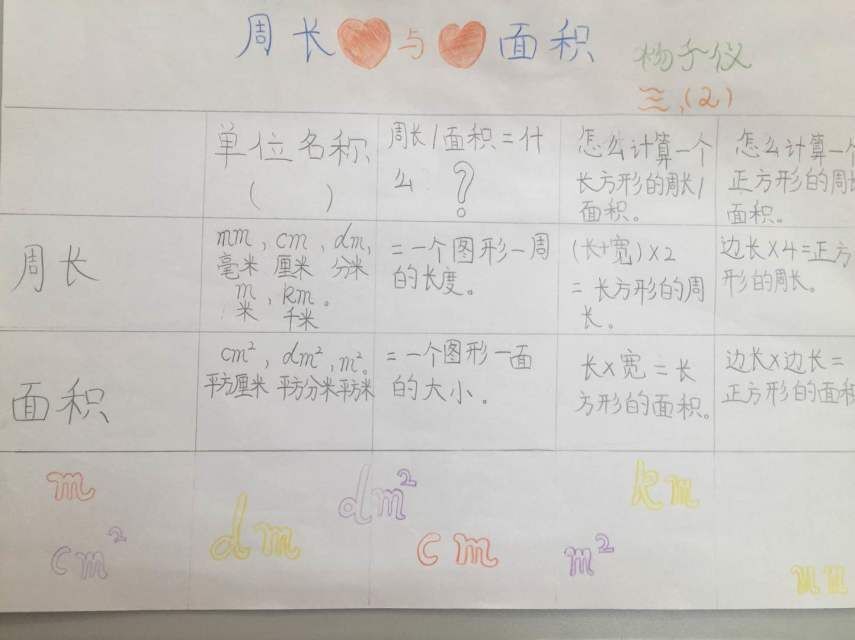 周长与面积
杨子仪
三、(2)
单位名称
(    )
周长/面积=什
么?
怎么计算一个
长方形的周长/
面积。
怎么计算一个
正方形的周长
面积。
周长
mm, cm, dm,
毫米 厘米 分米
m, km。
米 千米
=一个图形一周
的长度。
(长+宽)×2
=长方形的周
长。
边长×4=正方
形的周长。
面积
cm², dm², m²。
平方厘米 平方分米 平方米
=一个图形一面
的大小。
长×宽=长
方形的面积。
边长×边长=
正方形的面积
m
dm²
km
cm²
dm
cm
m²